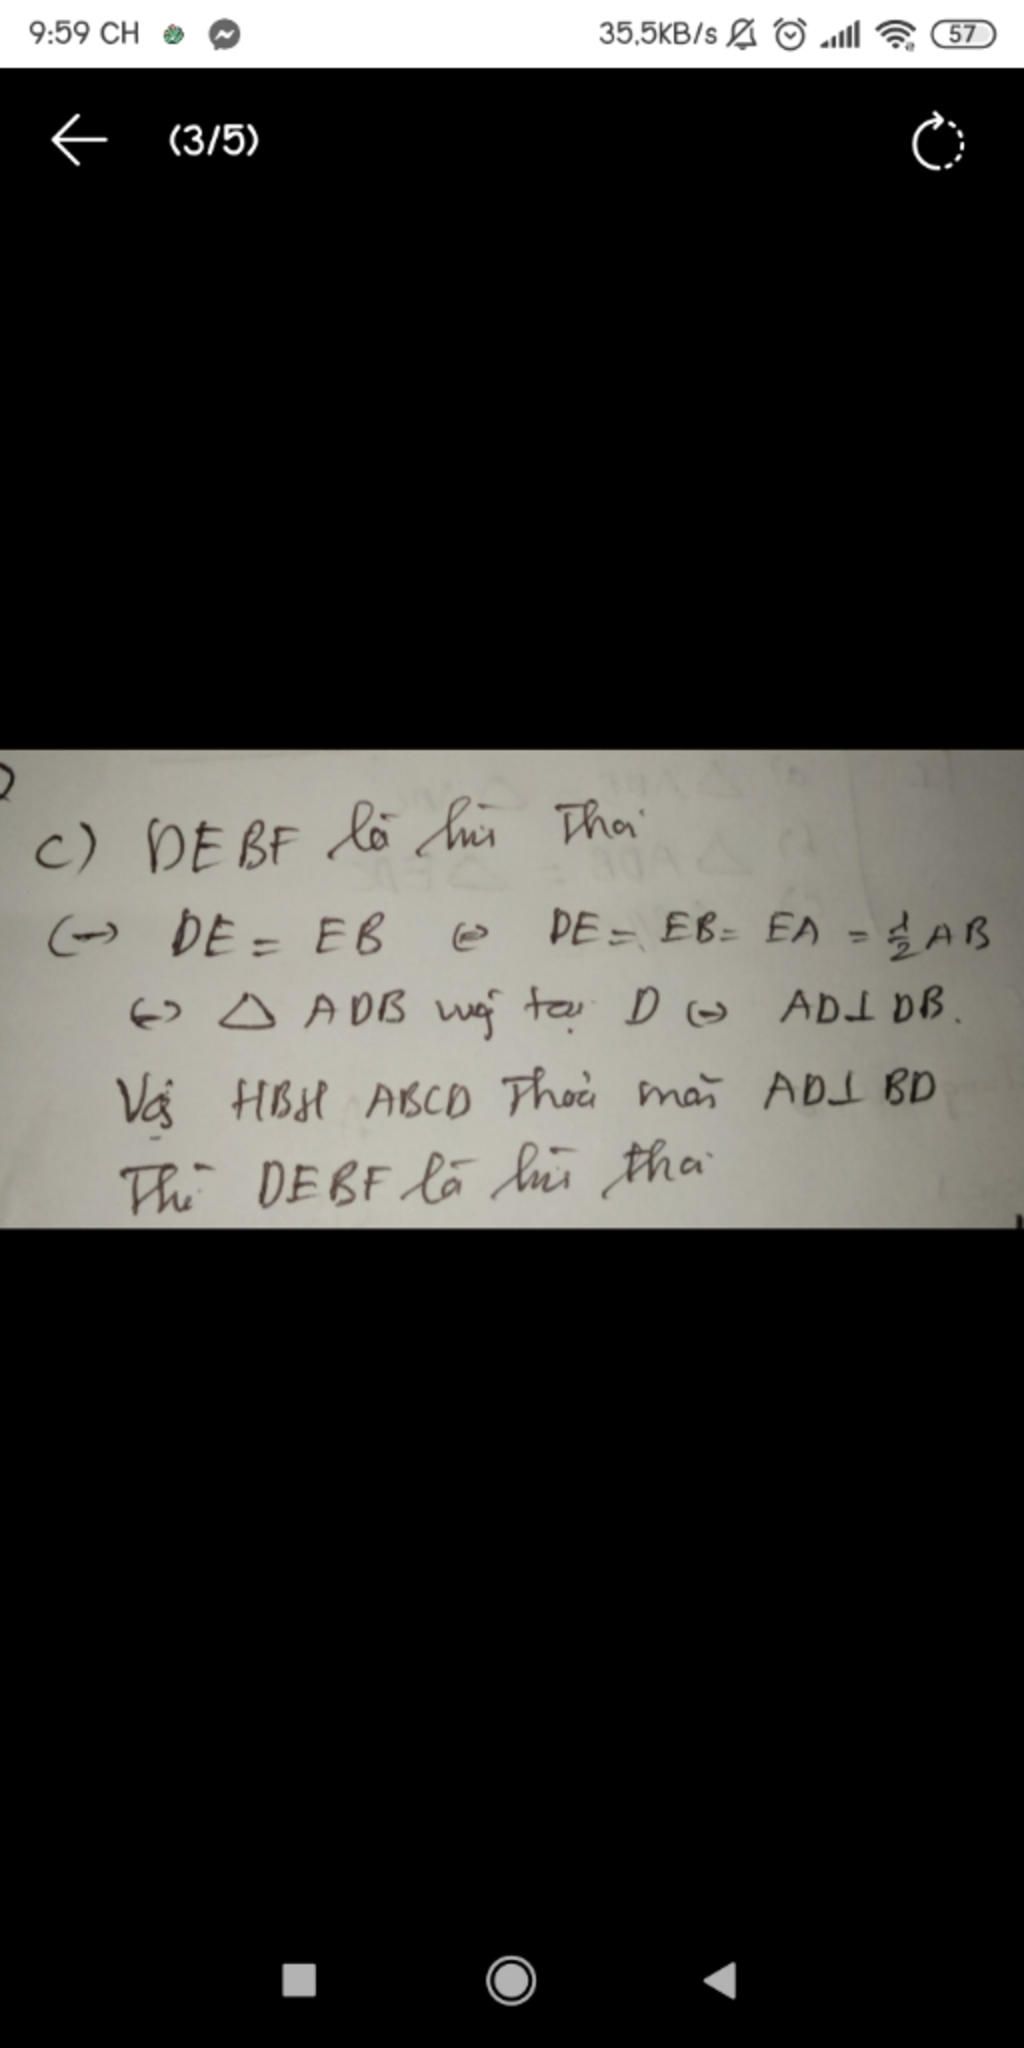 9:59 CH 35,5KB/s 57
(3/5)
c) DEBF là hìn Thoi
<-> DE = EB <=> DE = EB = EA = 1/2 AB
<-> △ ADB vug tại D <-> AD⊥DB.
Vậy HBH ABCD Thoả mãn AD⊥BD
Thì DEBF là hìn thoi